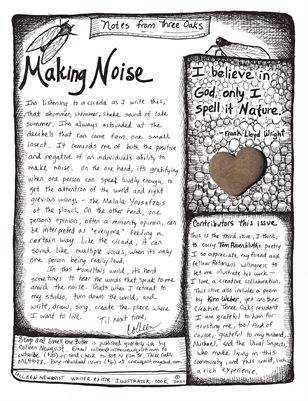 Notes from Three Oaks
Making Noise
I'm listening to a cicada as I write this,
That shimmer, shimmer, shake sound of late
summer. I'm always astounded at the
decibels that can come from one small
insect. It reminds me of both the positive
and negative of an individual's ability to
make noise. On the one hand, it's gratifying
when one person can speak loudly enough to
get the attention of the world and right
grievous wrongs — the Malala Yousafzais
of the planet. On the other hand, one
person's opinion, often a minority opinion, can
be interpreted as "everyone" feeling a
certain way. Like the cicada, it can
sound like multiple voices, when it's only
one person being really loud.
In this tumultuous world, it's hard
sometimes to hear the words that speak to me
amid the noise. That's when I retreat to
my studio, turn down the world, and
write, draw, sing, create the place where
I want to live.
Til next time,
Colleen
I believe in
God, only I
spell it Nature.
Frank Lloyd Wright
Contributors this issue
This is the third issue, I think,
to carry Tom Rosenbluth's poetry
I so appreciate my friend and
fellow Rotarian's willingness to
let me illustrate his work—
I love a creative collaboration.
This issue also includes a poem
by Kino Weber, yet another
Creative Three Oaks resident
I am grateful to him for
trusting me, too! And of
course, grateful to my husband,
Michael, and the Usual Suspects,
who make living in this
community, and this world, such
a rich experience.
Stop and Smell the Butter is published quarterly by
Colleen Newquist. Email
Three Oaks,
MI, 49128. Buy individual issues
COLLEEN NEWQUIST WRITER · EDITOR · ILLUSTRATOR · COOK © 2021